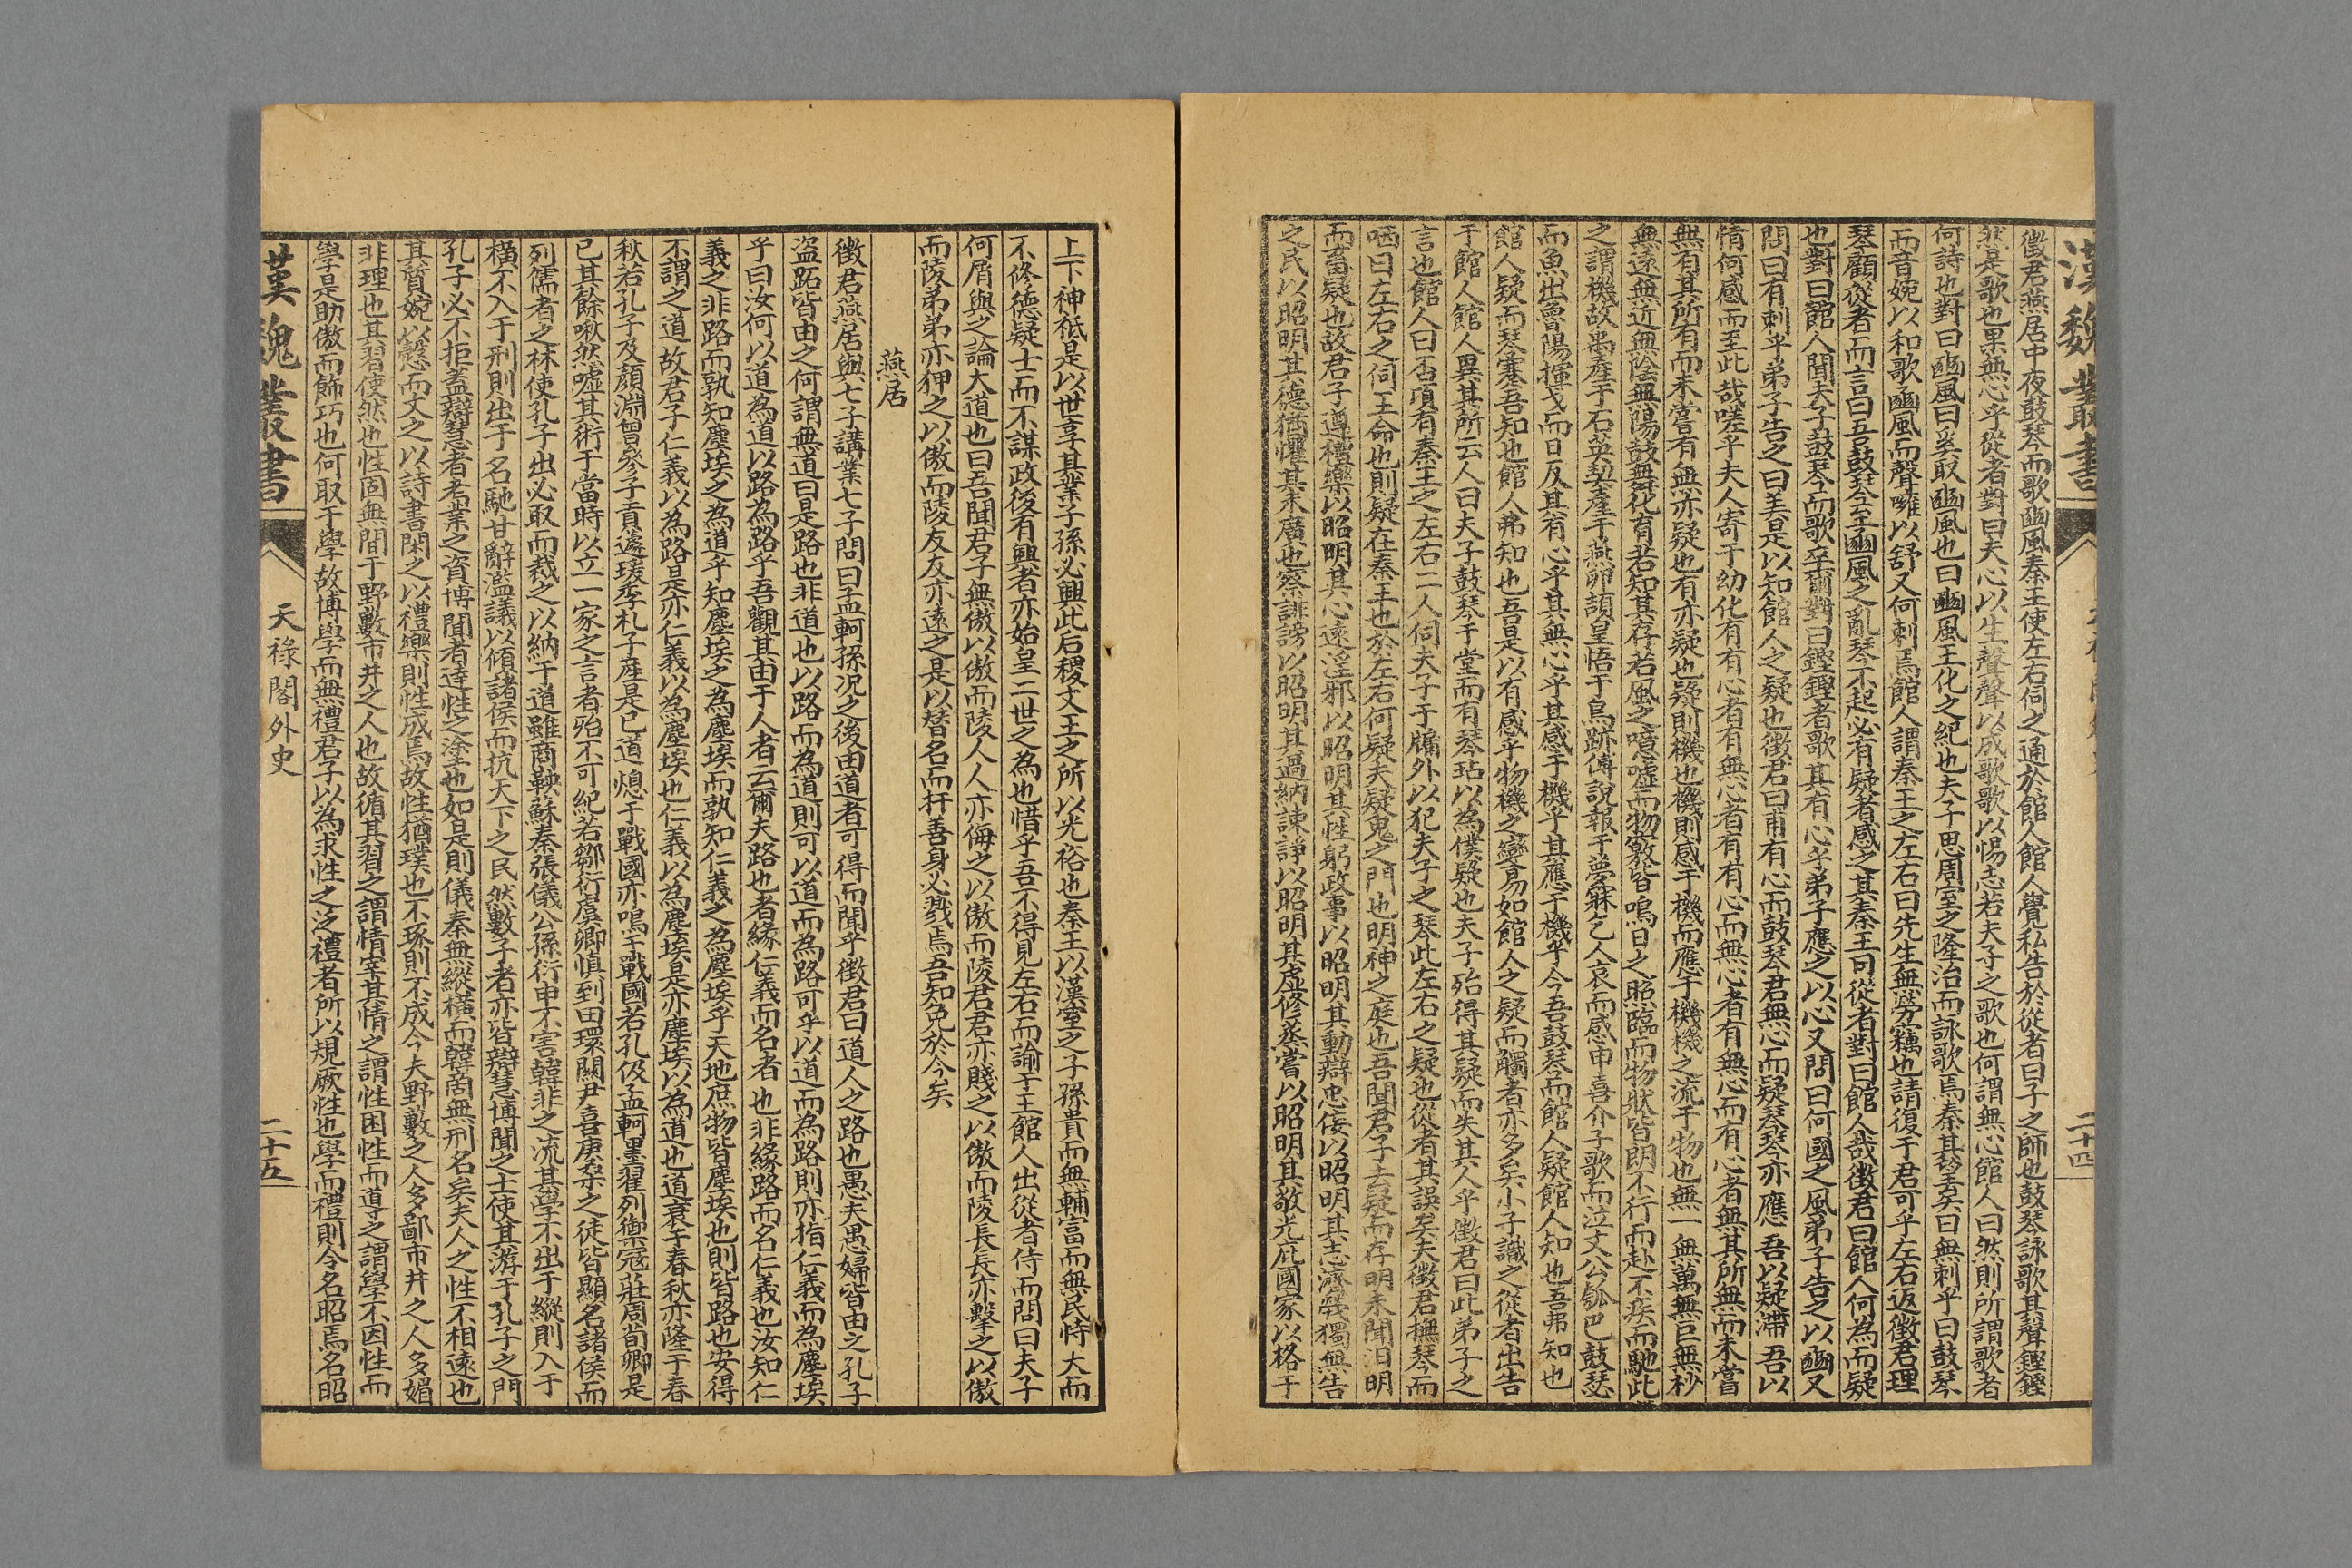 漢魏叢書
二十四
徵君燕居中夜鼓琴而歌豳風秦王使左右伺之通於館人館人覺私告於從者曰子之師也鼓琴詠歌其聲鏗鏗
然是歌也果無心乎從者對曰夫心以生聲聲以成歌歌以惕志若夫子之歌也何謂無心館人曰然則所謂歌者
何詩也對曰豳風曰奚取豳風也曰豳風王化之紀也夫子思周室之隆治而詠歌焉秦其瑩矣曰無刺乎曰鼓琴
而音婉以和歌豳風而聲噰以舒又何刺焉館人謂秦王之左右曰先生無勞竊也請復于君可乎左右返徵君理
琴顧從者而言曰吾鼓琴至豳風之亂琴不起必有疑者感之其秦王可從者對曰館人哉徵君曰館人何為而疑
也對曰館人聞夫子鼓琴而歌卒爾對曰鏗鏗者歌其有心乎弟子應之以心又問曰何國之風弟子告之以豳又
問曰有刺乎弟子告之曰美是以知館人之疑也徵君曰甫有心而鼓琴君無心而疑琴琴亦應吾以疑滯吾以
情何感而至此哉嗟乎夫人寄于幼化有有心者有無心者有有心而無心者有無心而有心者無其所無而未嘗
無有其所有而未嘗有無亦疑也有亦疑也疑則機也機則感于機而應于機機之流于物也無一無萬無巨無秒
無遠無近無陰無陽鼓舞化育若知其存若風之噫噓而物竅皆鳴日之照臨而物狀皆朗不行而赴不疾而馳此
之謂機故禹產于石英契產于燕卵頡皇悟于鳥跡傅說報于夢寐乞人哀而感申喜介子歌而泣文公瓠巴鼓瑟
而魚出魯陽揮戈而日反其有心乎其無心乎其感于機乎其應于機乎今吾鼓琴而館人疑館人知也吾弗知也
館人疑而琴蹇吾知也館人弗知也吾是以有感乎物機之變易如館人之疑而觸者亦多矣小子識之從者出告
于館人館人異其所云人曰夫子鼓琴于堂而有琴玷以為僕疑也夫子殆得其疑而失其人乎徵君曰此弟子之
言也館人曰否頃有秦王之左右二人伺夫子于牖外以犯夫子之琴此左右之疑也從者其誤矣夫徵君撫琴而
哂曰左右之伺王命也則疑在秦王也於左右何疑夫疑鬼之門也明神之庭也吾聞君子去疑而存明未聞汩明
而畜疑也故君子遵禮樂以昭明其心遠淫邪以昭明其性躬政事以昭明其動辯忠佞以昭明其志濟煢獨無告
之民以昭明其德猶懼其未廣也察誹謗以昭明其過納諫諍以昭明其虛修烝嘗以昭明其敬光庇國家以格于
上下神祗是以世享其業子孫必興此后稷文王之所以光裕也秦王以漢室之子孫貴而無輔富而無民恃大而
不修德疑士而不謀政後有興者亦始皇二世之為也惜乎吾不得見左右而諭于王館人出從者侍而問曰夫子
何屑與之論大道也曰吾聞君子無傲以傲而陵人人亦侮之以傲而陵君君亦賤之以傲而陵長長亦擊之以傲
而陵弟弟亦狎之以傲而陵友友亦遠之是以替名而扞善身必戮焉吾知免於今矣
燕居
徵君燕居與七子講業七子問曰孟軻孫况之後由道者可得而聞乎徵君曰道人之路也愚夫愚婦皆由之孔子
盜跖皆由之何謂無道曰是路也非道也以路而為道則可以道而為路可乎以道而為路則亦指仁義而為塵埃
乎曰汝何以道為道以路為路乎吾觀其由于人者云爾夫路也者緣仁義而名者也非緣路而名仁義也汝知仁
義之非路而孰知塵埃之為道乎知塵埃之為塵埃而孰知仁義之為塵埃乎天地庶物皆塵埃也則皆路也安得
不謂之道故君子仁義以為路是亦仁義以為塵埃也仁義以為塵埃是亦塵埃以為道也道衰于春秋亦隆于春
秋若孔子及顏淵曾參子貢蘧瑗季札子產是已道熄于戰國亦鳴于戰國若孔伋孟軻墨翟列禦寇莊周荀卿是
已其餘啾然噓其術于當時以立一家之言者殆不可紀若鄒衍虞卿慎到田環關尹喜庚桑之徒皆顯名諸侯而
列儒者之林使孔子出必取而裁之以納于道雖商鞅蘇秦張儀公孫衍申不害韓非之流其學不出于縱則入于
橫不入于刑則出于名馳甘辭濫議以傾諸侯而抗天下之民然數子者亦皆辯慧博聞之士使其游于孔子之門
孔子必不拒蓋辯慧者者業之資博聞者達性之塗也如是則儀秦無縱橫而韓商無刑名矣夫人之性不相遠也
其質婉以懿而文之以詩書閑之以禮樂則性成焉故性猶璞也不琢則不成今夫野數之人多鄙市井之人多媚
非理也其習使然也性固無間于野數市井之人也故循其習之謂情宰其情之謂性困性而導之謂學不因性而
學是助傲而飾巧也何取于學故博學而無禮君子以為求性之泛禮者所以規厥性也學而禮則令名昭焉名昭
漢魏叢書
天祿閣外史
二十五